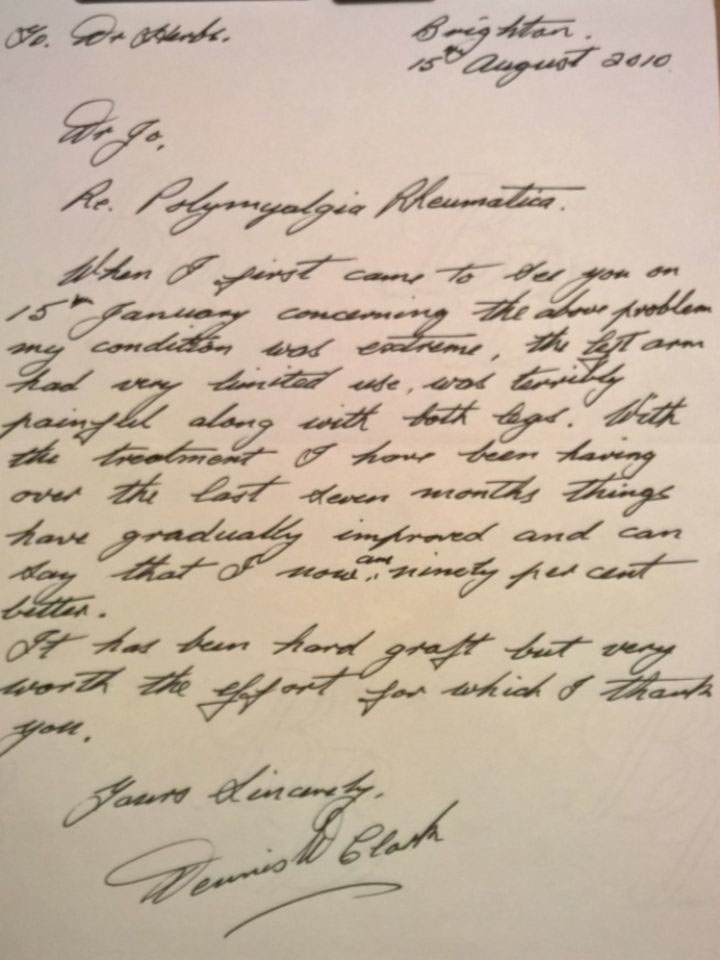 To. Dr Herbs.
Brighton.
15th August 2010
Dr Jo,
Re. Polymyalgia Rheumatica.
When I first came to see you on
15th January concerning the above problem
my condition was extreme, the left arm
had very limited use, was terribly
painful along with both legs. With
the treatment I have been having
over the last seven months things
have gradually improved and can
say that I now am ninety per cent
better.
It has been hard graft but very
worth the effort for which I thank
you.
Yours Sincerely,
Dennis W Clark